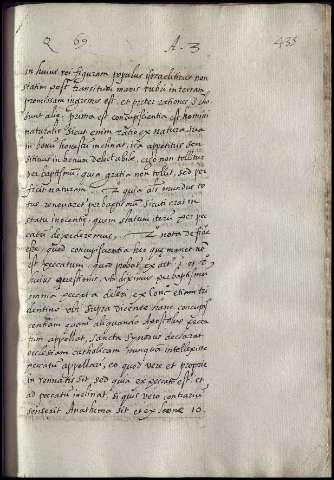 Q 69 A. 3 435
in huius rei figuram populus israeliticus non
statim post transitum maris rubri in terram
promissam ingresus est. et preter rationes
bunt aliæ. prima est concupiscentia est homini
naturalis sicut enim ratio ex natura sua
in bonu honestu inclinat, ita appetitus sen
sitiuus in bonum delectabile, ergo non tollitur
per baptismu, quia gratia non tollit, sed per
ficit naturam. quia alis mundus to
tus renouaret per baptismu sicuti erat in
statu inocentie, quem statum iteru per pe
catu deperderemus. nota de fide
esse, quod concupiscentia hec que manet no
est peccatum, quod probat ex
huius questionis, ubi diximus per baptismu
omnia peccata deleri ex Conc. etiam tri
dentino ubi supra dicente hanc concupis
centiam quam aliquando Apostolus pecca
tum appellat, sancta synodus declarat
ecclesiam catholicam nunquam intellexisse
peccatum appellari, eo quod vere et proprie
in renatis sit, sed quia ex peccato est et
ad peccatu inclinat, si quis vero contrariu
senserit Anathema sit et ex